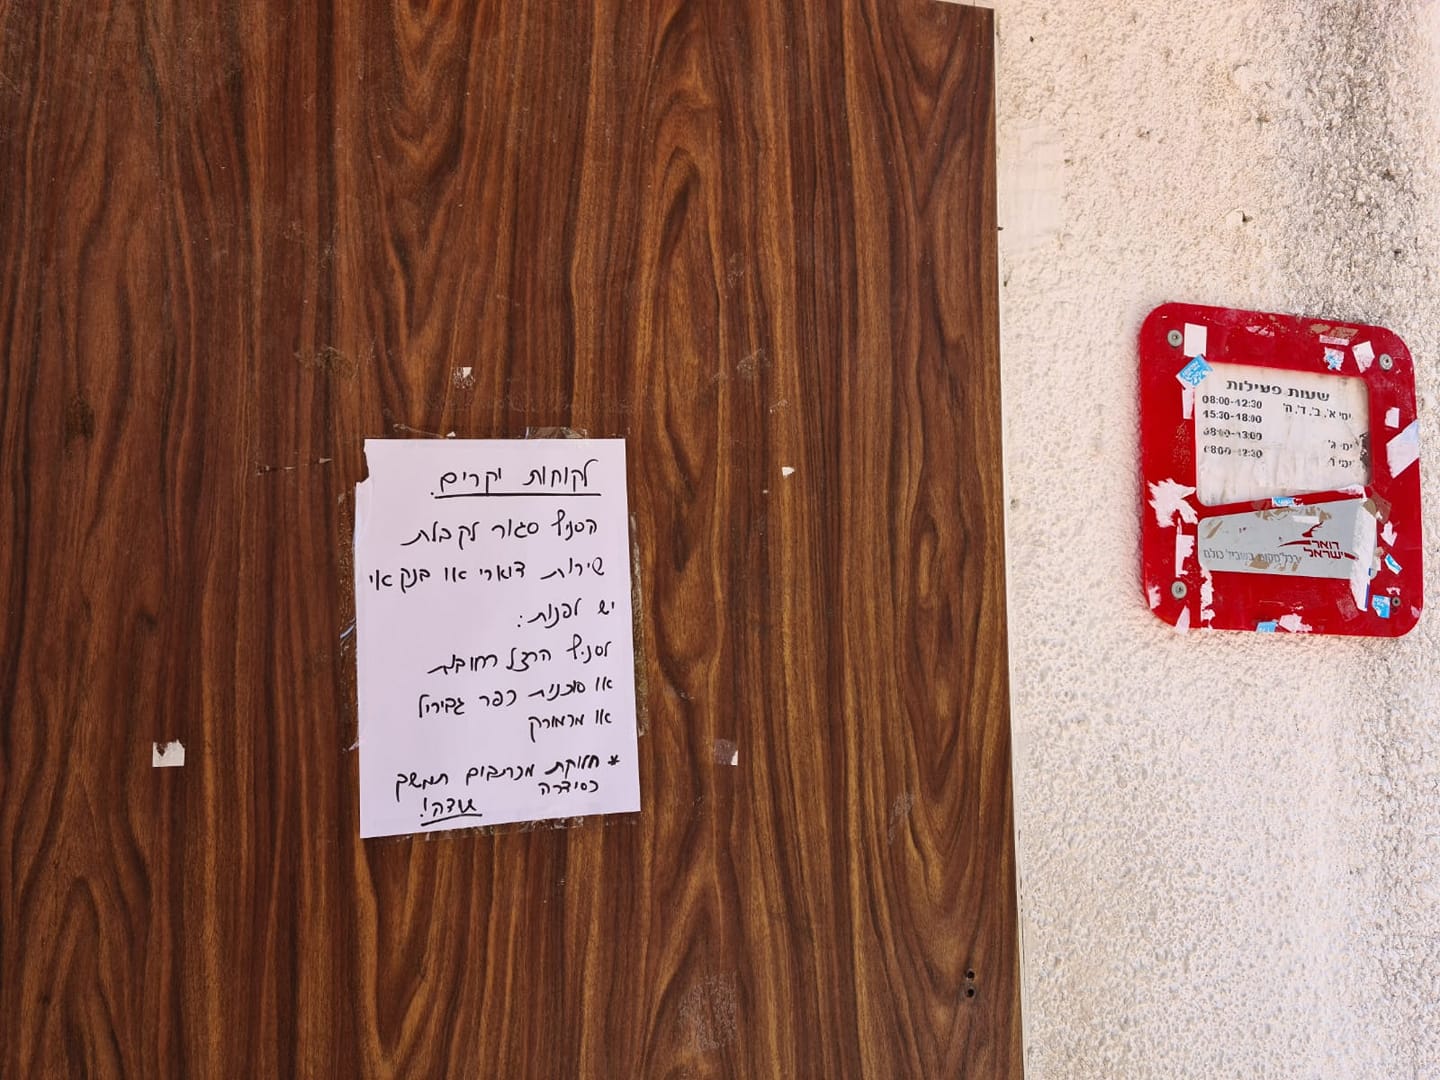 לקוחות יקרים.
הסניף סגור לקבלת
שירות דוארי או בנקאי
יש לפנות:
לסניף הרצל רחובות
או סוכנות כפר גבירול
או מרמורק
* חלוקת מכתבים תמשך
כסידרה
תודה!
שעות פעילות
ימי א', ב', ד', ה' 08:00-12:30
15:30-18:00
ימי ג' 08:00-13:00
ימי ו' 08:00-12:30
דואר
ישראל
בכל מקום בשביל כולם